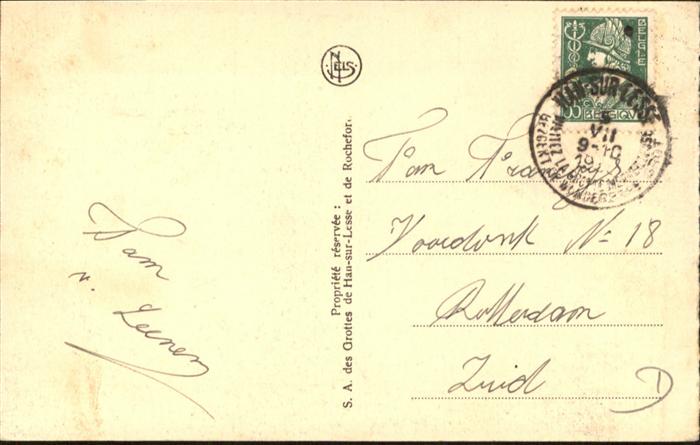 NELS
BELGIE
35 c BELGIQUE
HAN-SUR-LESSE
VII
9-10
19
Propriété réservée :
S. A. des Grottes de Han-sur-Lesse et de Rochefort
Fam
Voordonk No 18
Rotterdam
Zuid
D
Fam
v. Leenen